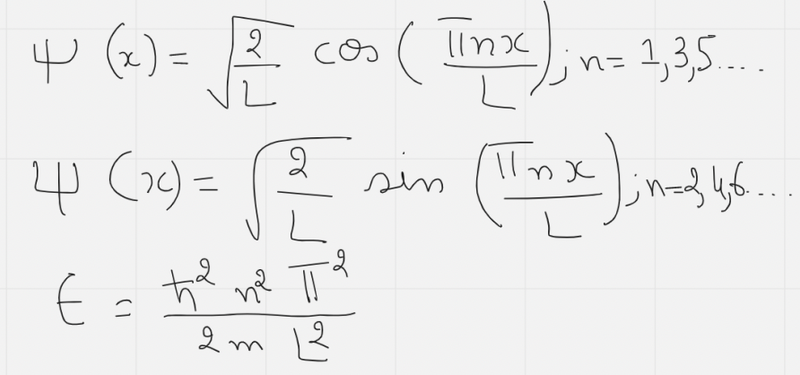 ψ(x) = √(2/L) cos(πnx/L); n = 1,3,5....
ψ(x) = √(2/L) sin(πnx/L); n=2,4,6....
E = ħ² n² π² / 2m L²